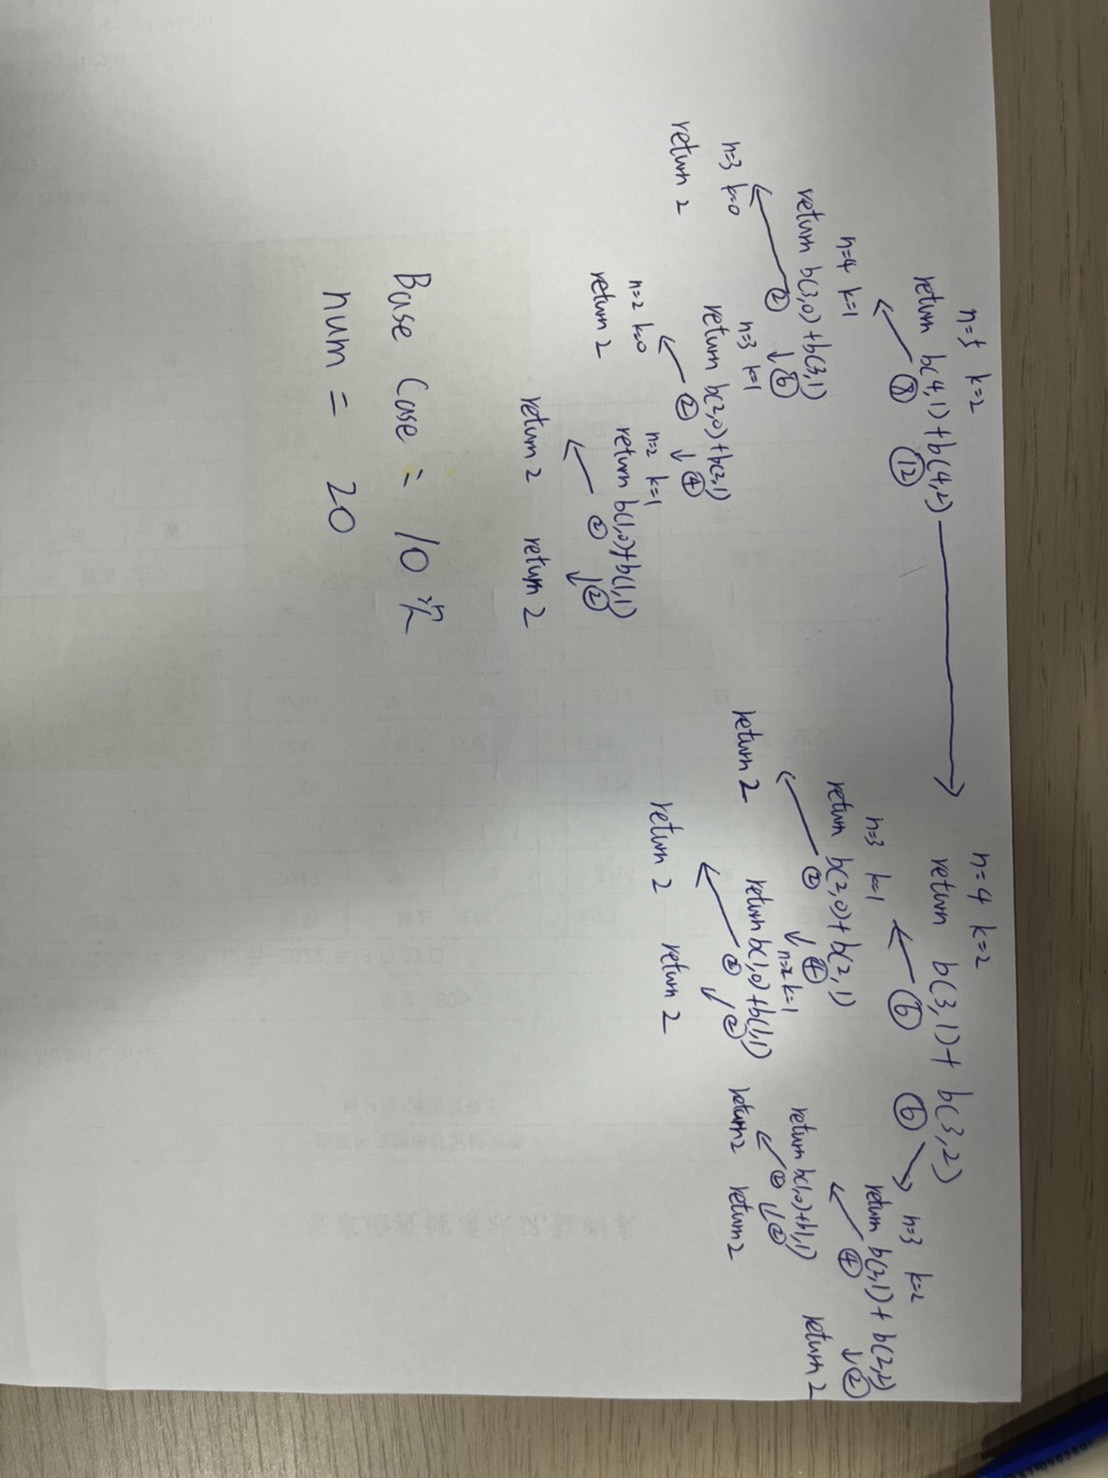 n=5 k=2
return b(4,1)+b(4,2)
8 12
n=4 k=1
return b(3,0)+b(3,1)
2 6
n=3 k=0
return 2
n=3 k=1
return b(2,0)+b(2,1)
2 4
n=2 k=0
return 2
n=2 k=1
return b(1,0)+b(1,1)
2 2
return 2 return 2
n=4 k=2
return b(3,1)+ b(3,2)
6 6
n=3 k=1
return b(2,0)+b(2,1)
2 4
return 2
n=2 k=1
return b(1,0)+b(1,1)
2 2
return 2 return 2
n=3 k=2
return b(2,1)+ b(2,2)
4 2
return b(1,0)+b1,1)
2 2
return 2 return 2
return 2
Base Case = 10 次
num = 20